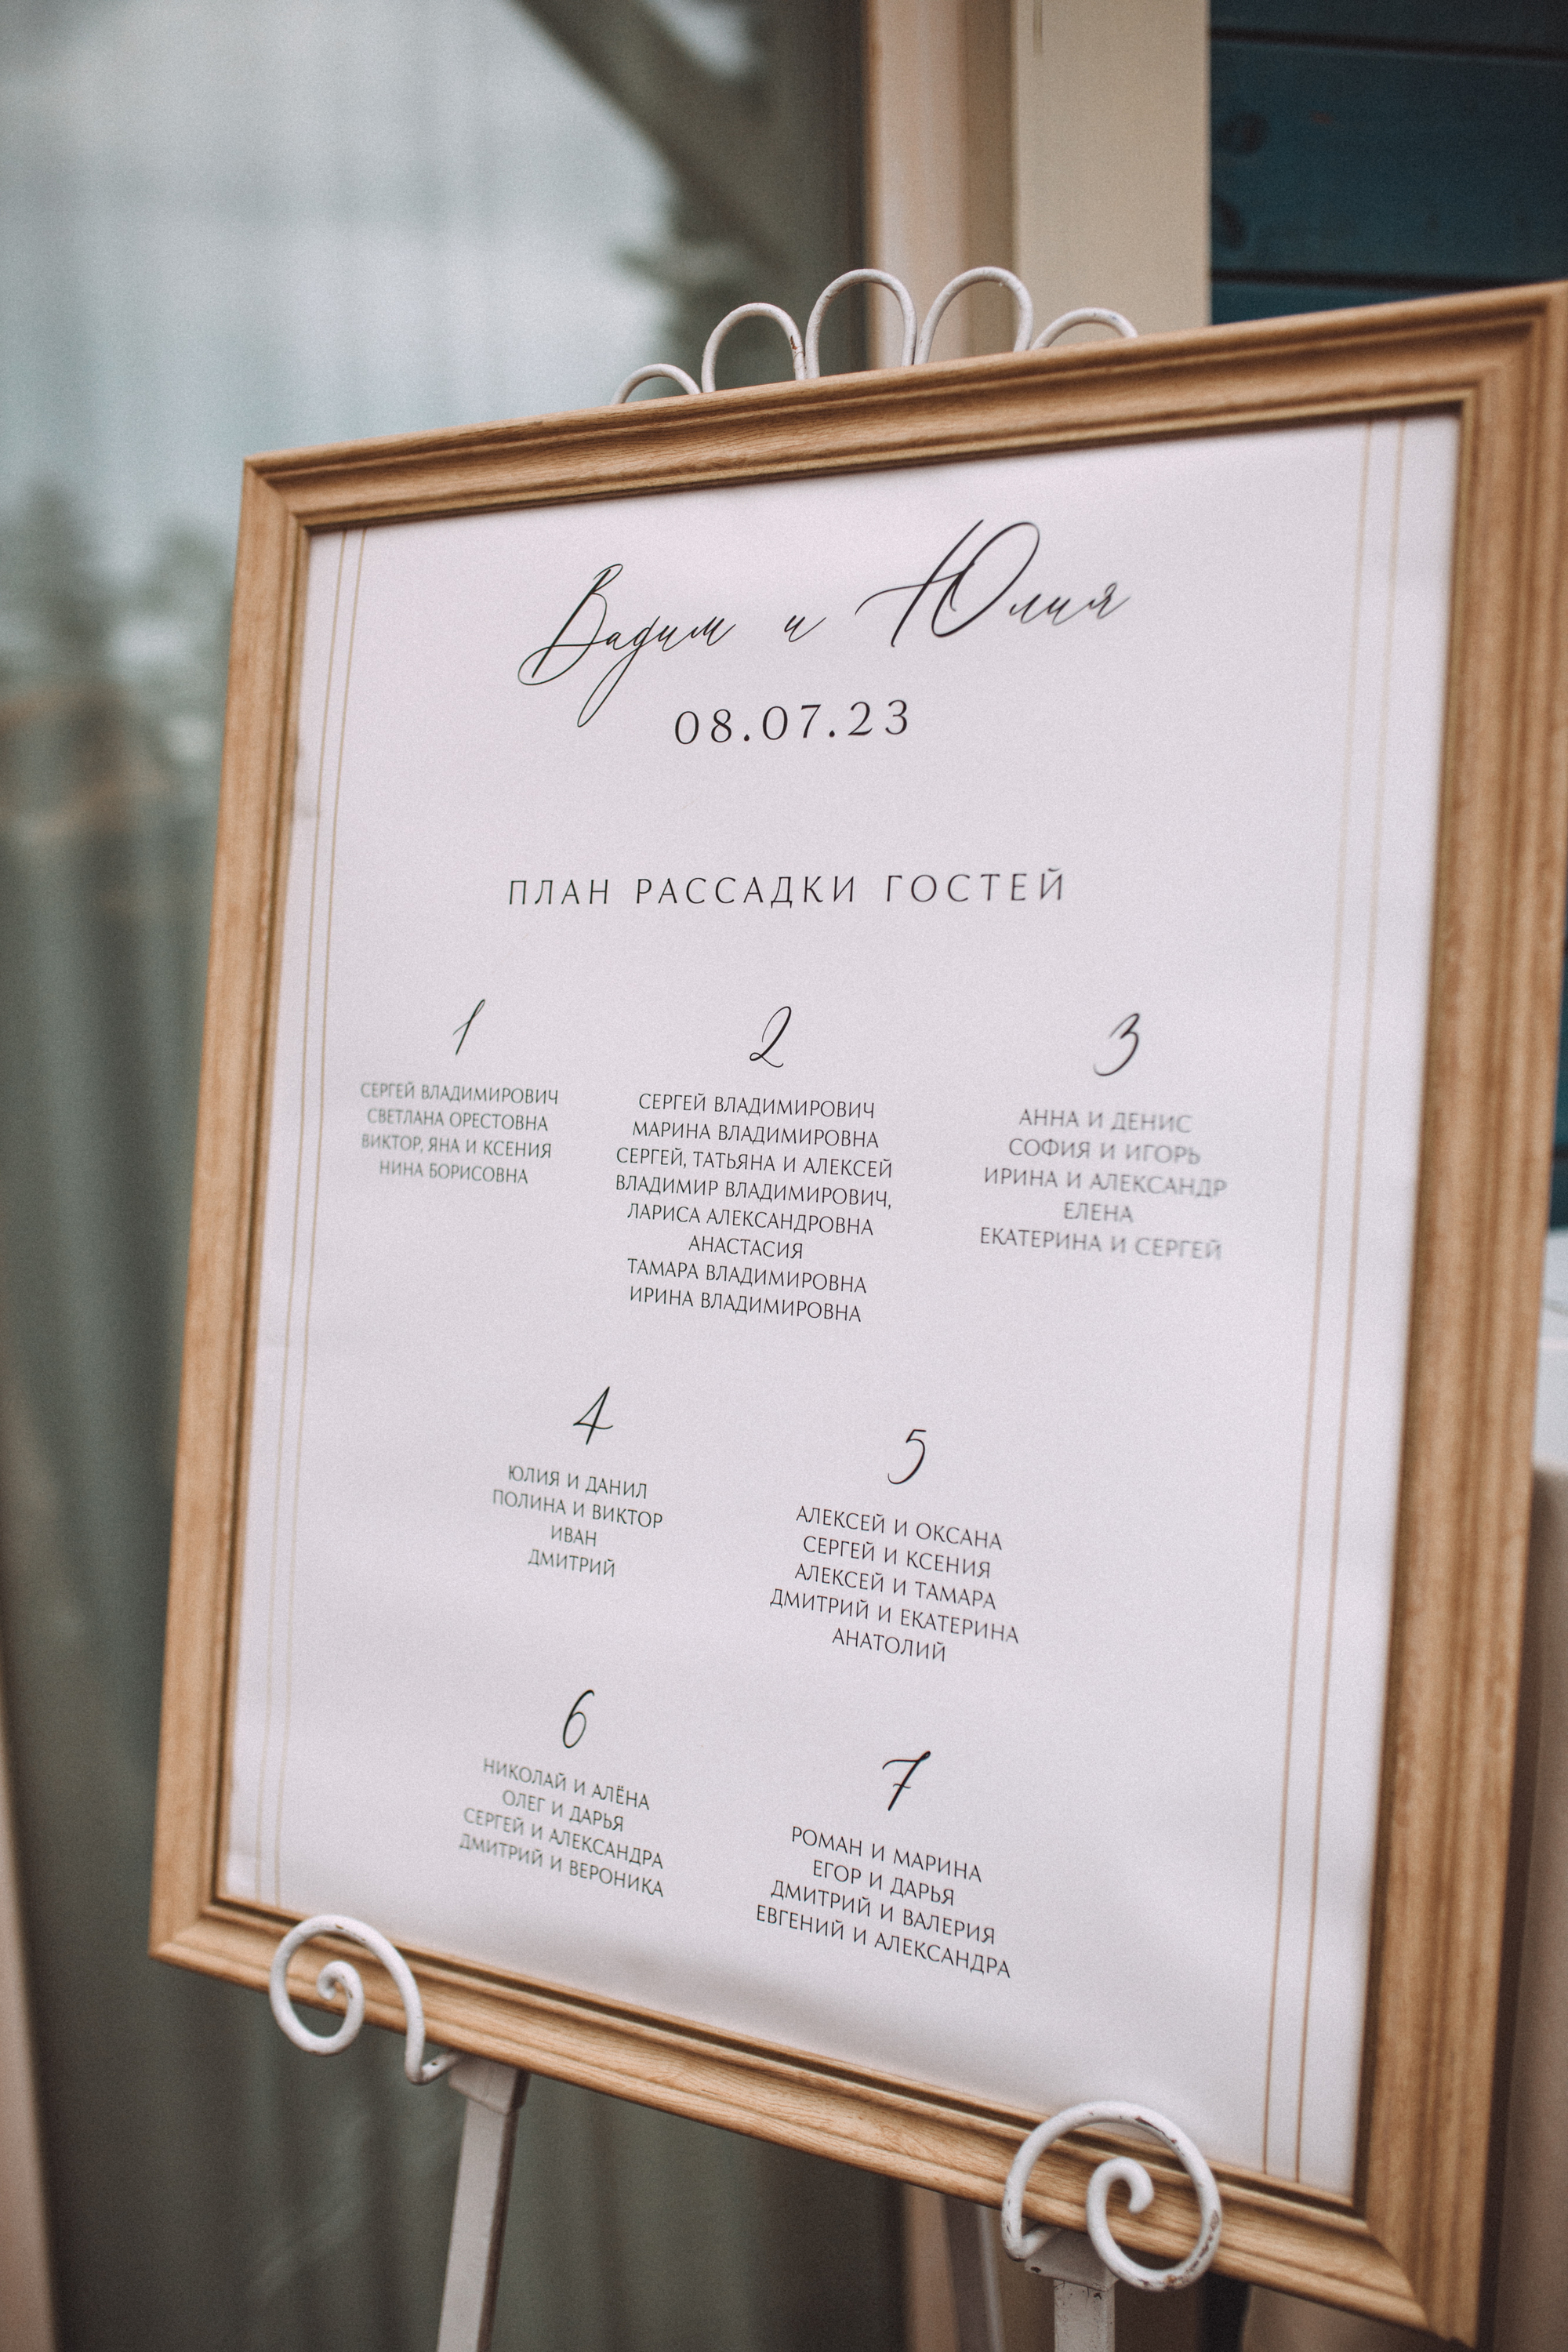 Вадим и Юлия
08.07.23
ПЛАН РАССАДКИ ГОСТЕЙ
1
СЕРГЕЙ ВЛАДИМИРОВИЧ
СВЕТЛАНА ОРЕСТОВНА
ВИКТОР, ЯНА И КСЕНИЯ
НИНА БОРИСОВНА
2
СЕРГЕЙ ВЛАДИМИРОВИЧ
МАРИНА ВЛАДИМИРОВНА
СЕРГЕЙ, ТАТЬЯНА И АЛЕКСЕЙ
ВЛАДИМИР ВЛАДИМИРОВИЧ,
ЛАРИСА АЛЕКСАНДРОВНА
АНАСТАСИЯ
ТАМАРА ВЛАДИМИРОВНА
ИРИНА ВЛАДИМИРОВНА
3
АННА И ДЕНИС
СОФИЯ И ИГОРЬ
ИРИНА И АЛЕКСАНДР
ЕЛЕНА
ЕКАТЕРИНА И СЕРГЕЙ
4
ЮЛИЯ И ДАНИЛ
ПОЛИНА И ВИКТОР
ИВАН
ДМИТРИЙ
5
АЛЕКСЕЙ И ОКСАНА
СЕРГЕЙ И КСЕНИЯ
АЛЕКСЕЙ И ТАМАРА
ДМИТРИЙ И ЕКАТЕРИНА
АНАТОЛИЙ
6
НИКОЛАЙ И АЛЁНА
ОЛЕГ И ДАРЬЯ
СЕРГЕЙ И АЛЕКСАНДРА
ДМИТРИЙ И ВЕРОНИКА
7
РОМАН И МАРИНА
ЕГОР И ДАРЬЯ
ДМИТРИЙ И ВАЛЕРИЯ
ЕВГЕНИЙ И АЛЕКСАНДРА